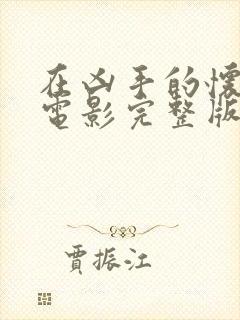 在凶手的懷
電影完整版
賈振江